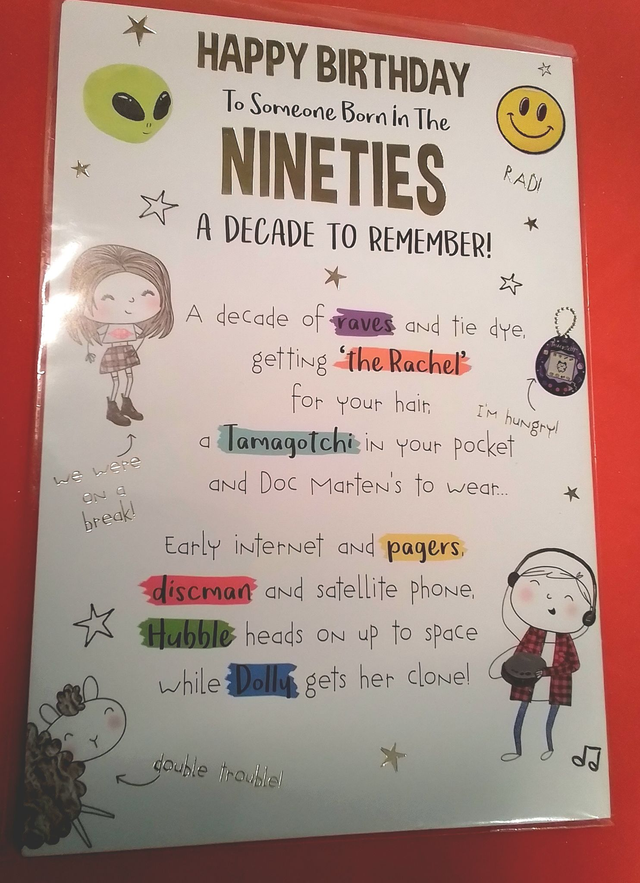 HAPPY BIRTHDAY
To Someone Born in The
NINETIES
RAD!
A DECADE TO REMEMBER!
A decade of raves and tie dye,
getting 'the Rachel'
for your hair,
I'm hungry!
a Tamagotchi in your pocket
and Doc Marten's to wear...
we were
on a
break!
Early internet and pagers,
discman and satellite phone,
Hubble heads on up to space
while Dolly gets her clone!
double trouble!